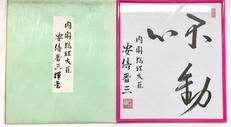 内閣総理大臣
安倍晋三揮毫
不動
内閣総理大臣
安倍晋三